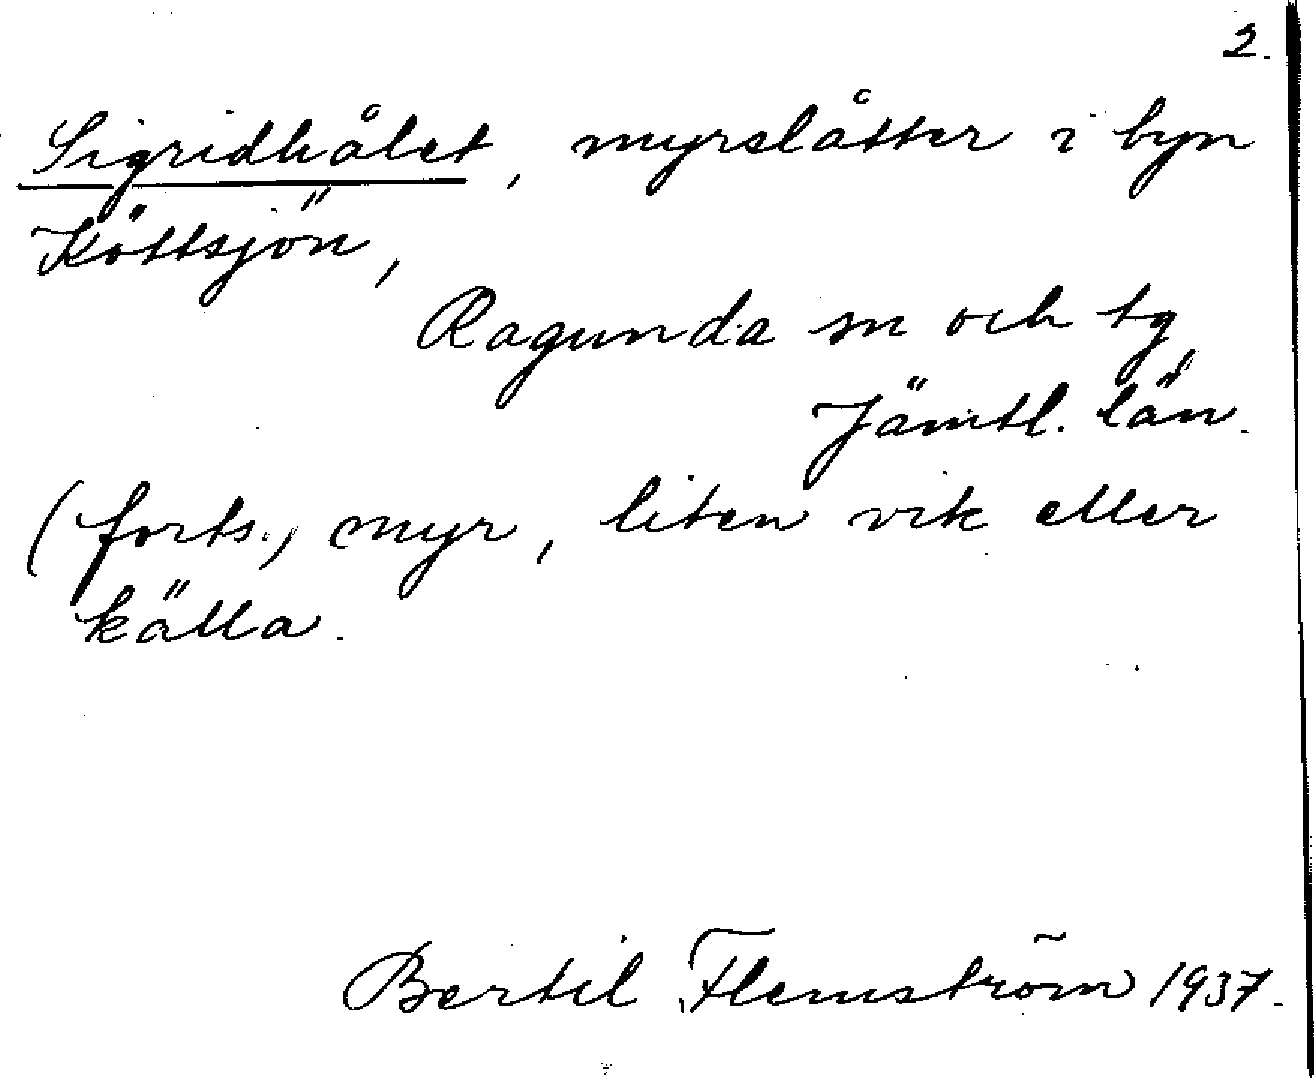 2.
Sigridhålet, myrslåtter i byn
Köttsjön,
Ragunda sn och tg
Jämtl. län.
(forts., myr, liten vik eller
källa.
Bertil Flemström 1937.